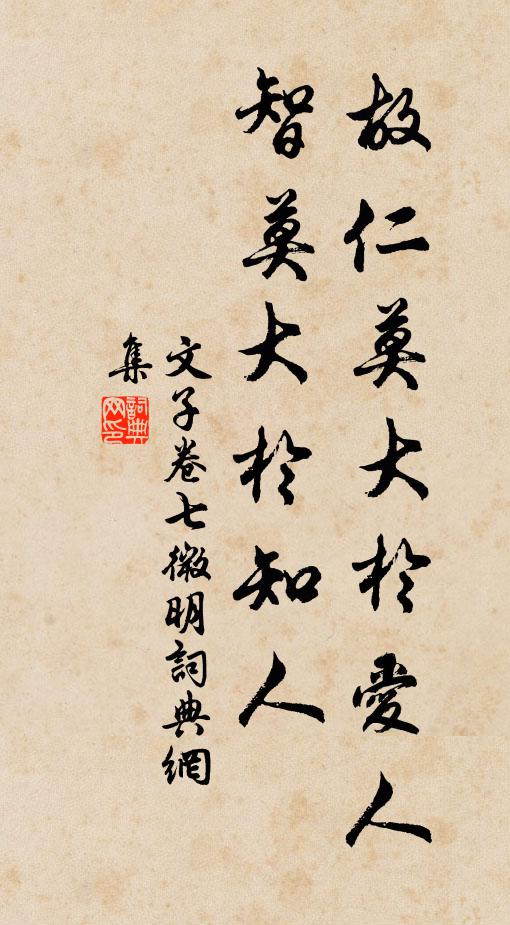 故仁莫大於愛人
智莫大於知人
文子卷七微明詞典網
集
詞典网印